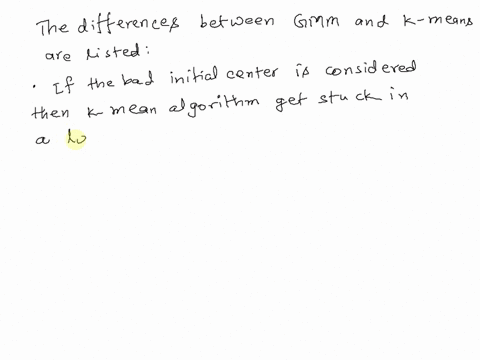 The differences between GMM and K-means
are listed:
• If the bad initial center is considered
then k mean algorithm get stuck in
a lo